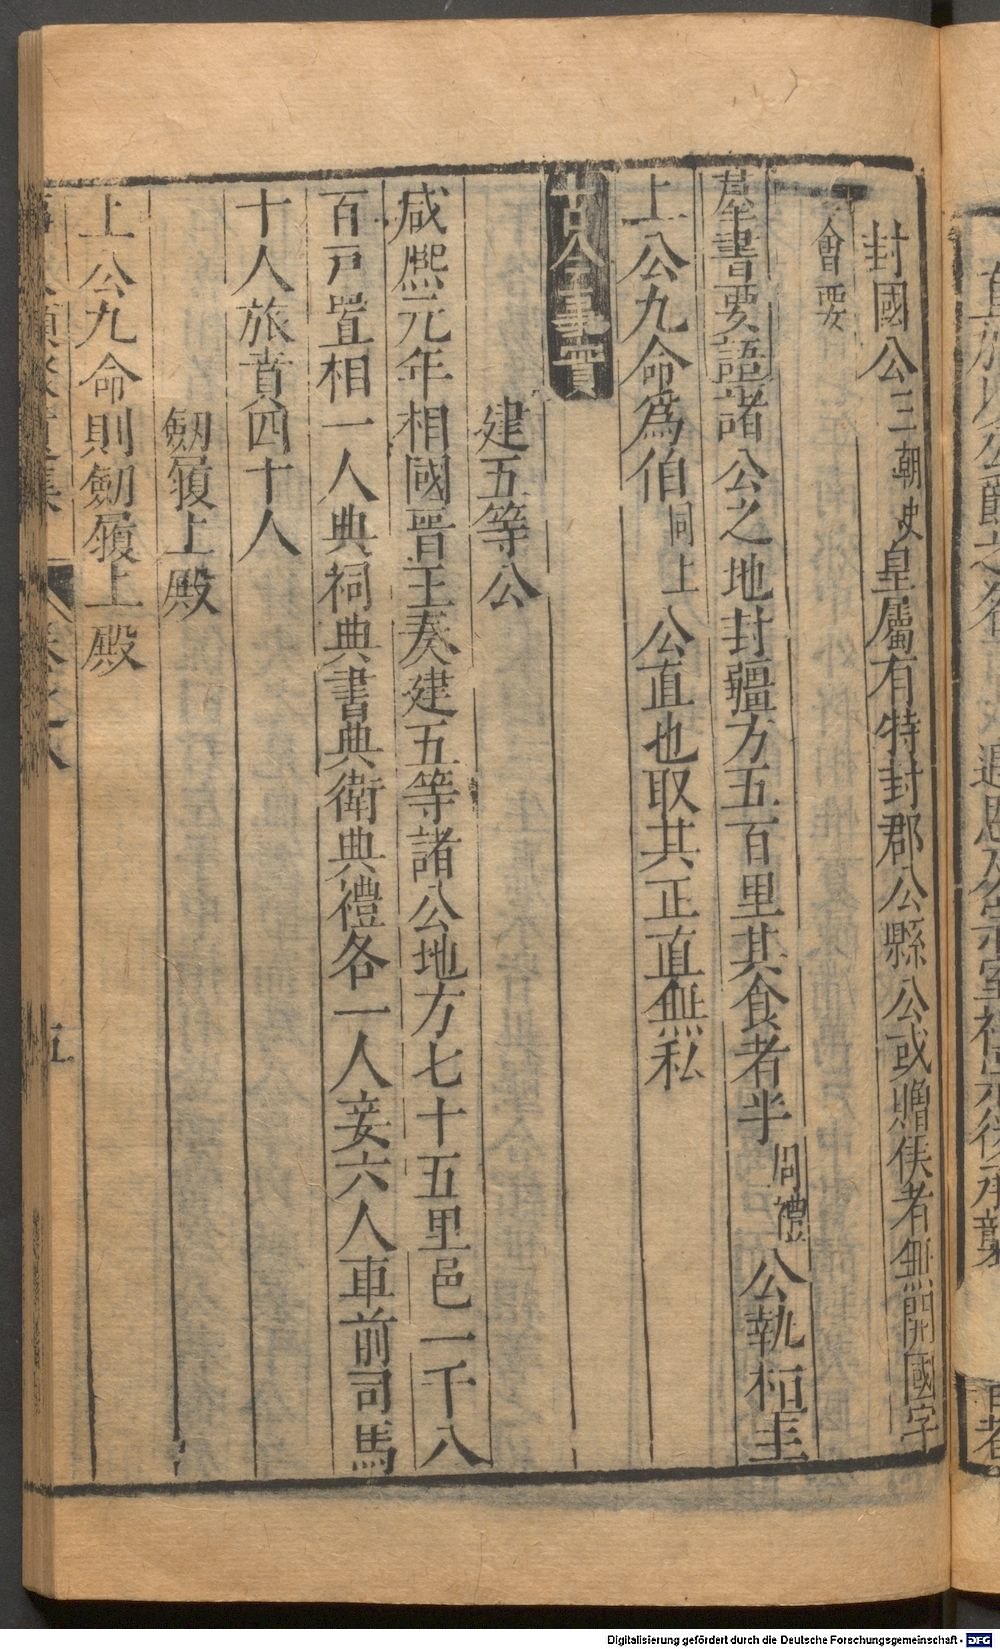 封國公三朝史皇屬有特封郡公縣公或贈侯者無開國字
會要
羣書要語諸公之地封疆方五百里其食者半周禮公執桓圭
上公九命爲伯同上公直也取其正直無私
古今事實
建五等公
咸熙元年相國晋王奏建五等諸公地方七十五里邑一千八
百戸置相一人典祠典書典衛典禮各一人妾六人車前司馬
十人旅賁四十人
劒履上殿
上公九命則劒履上殿
五
Digitalisierung gefördert durch die Deutsche Forschungsgemeinschaft - DFG